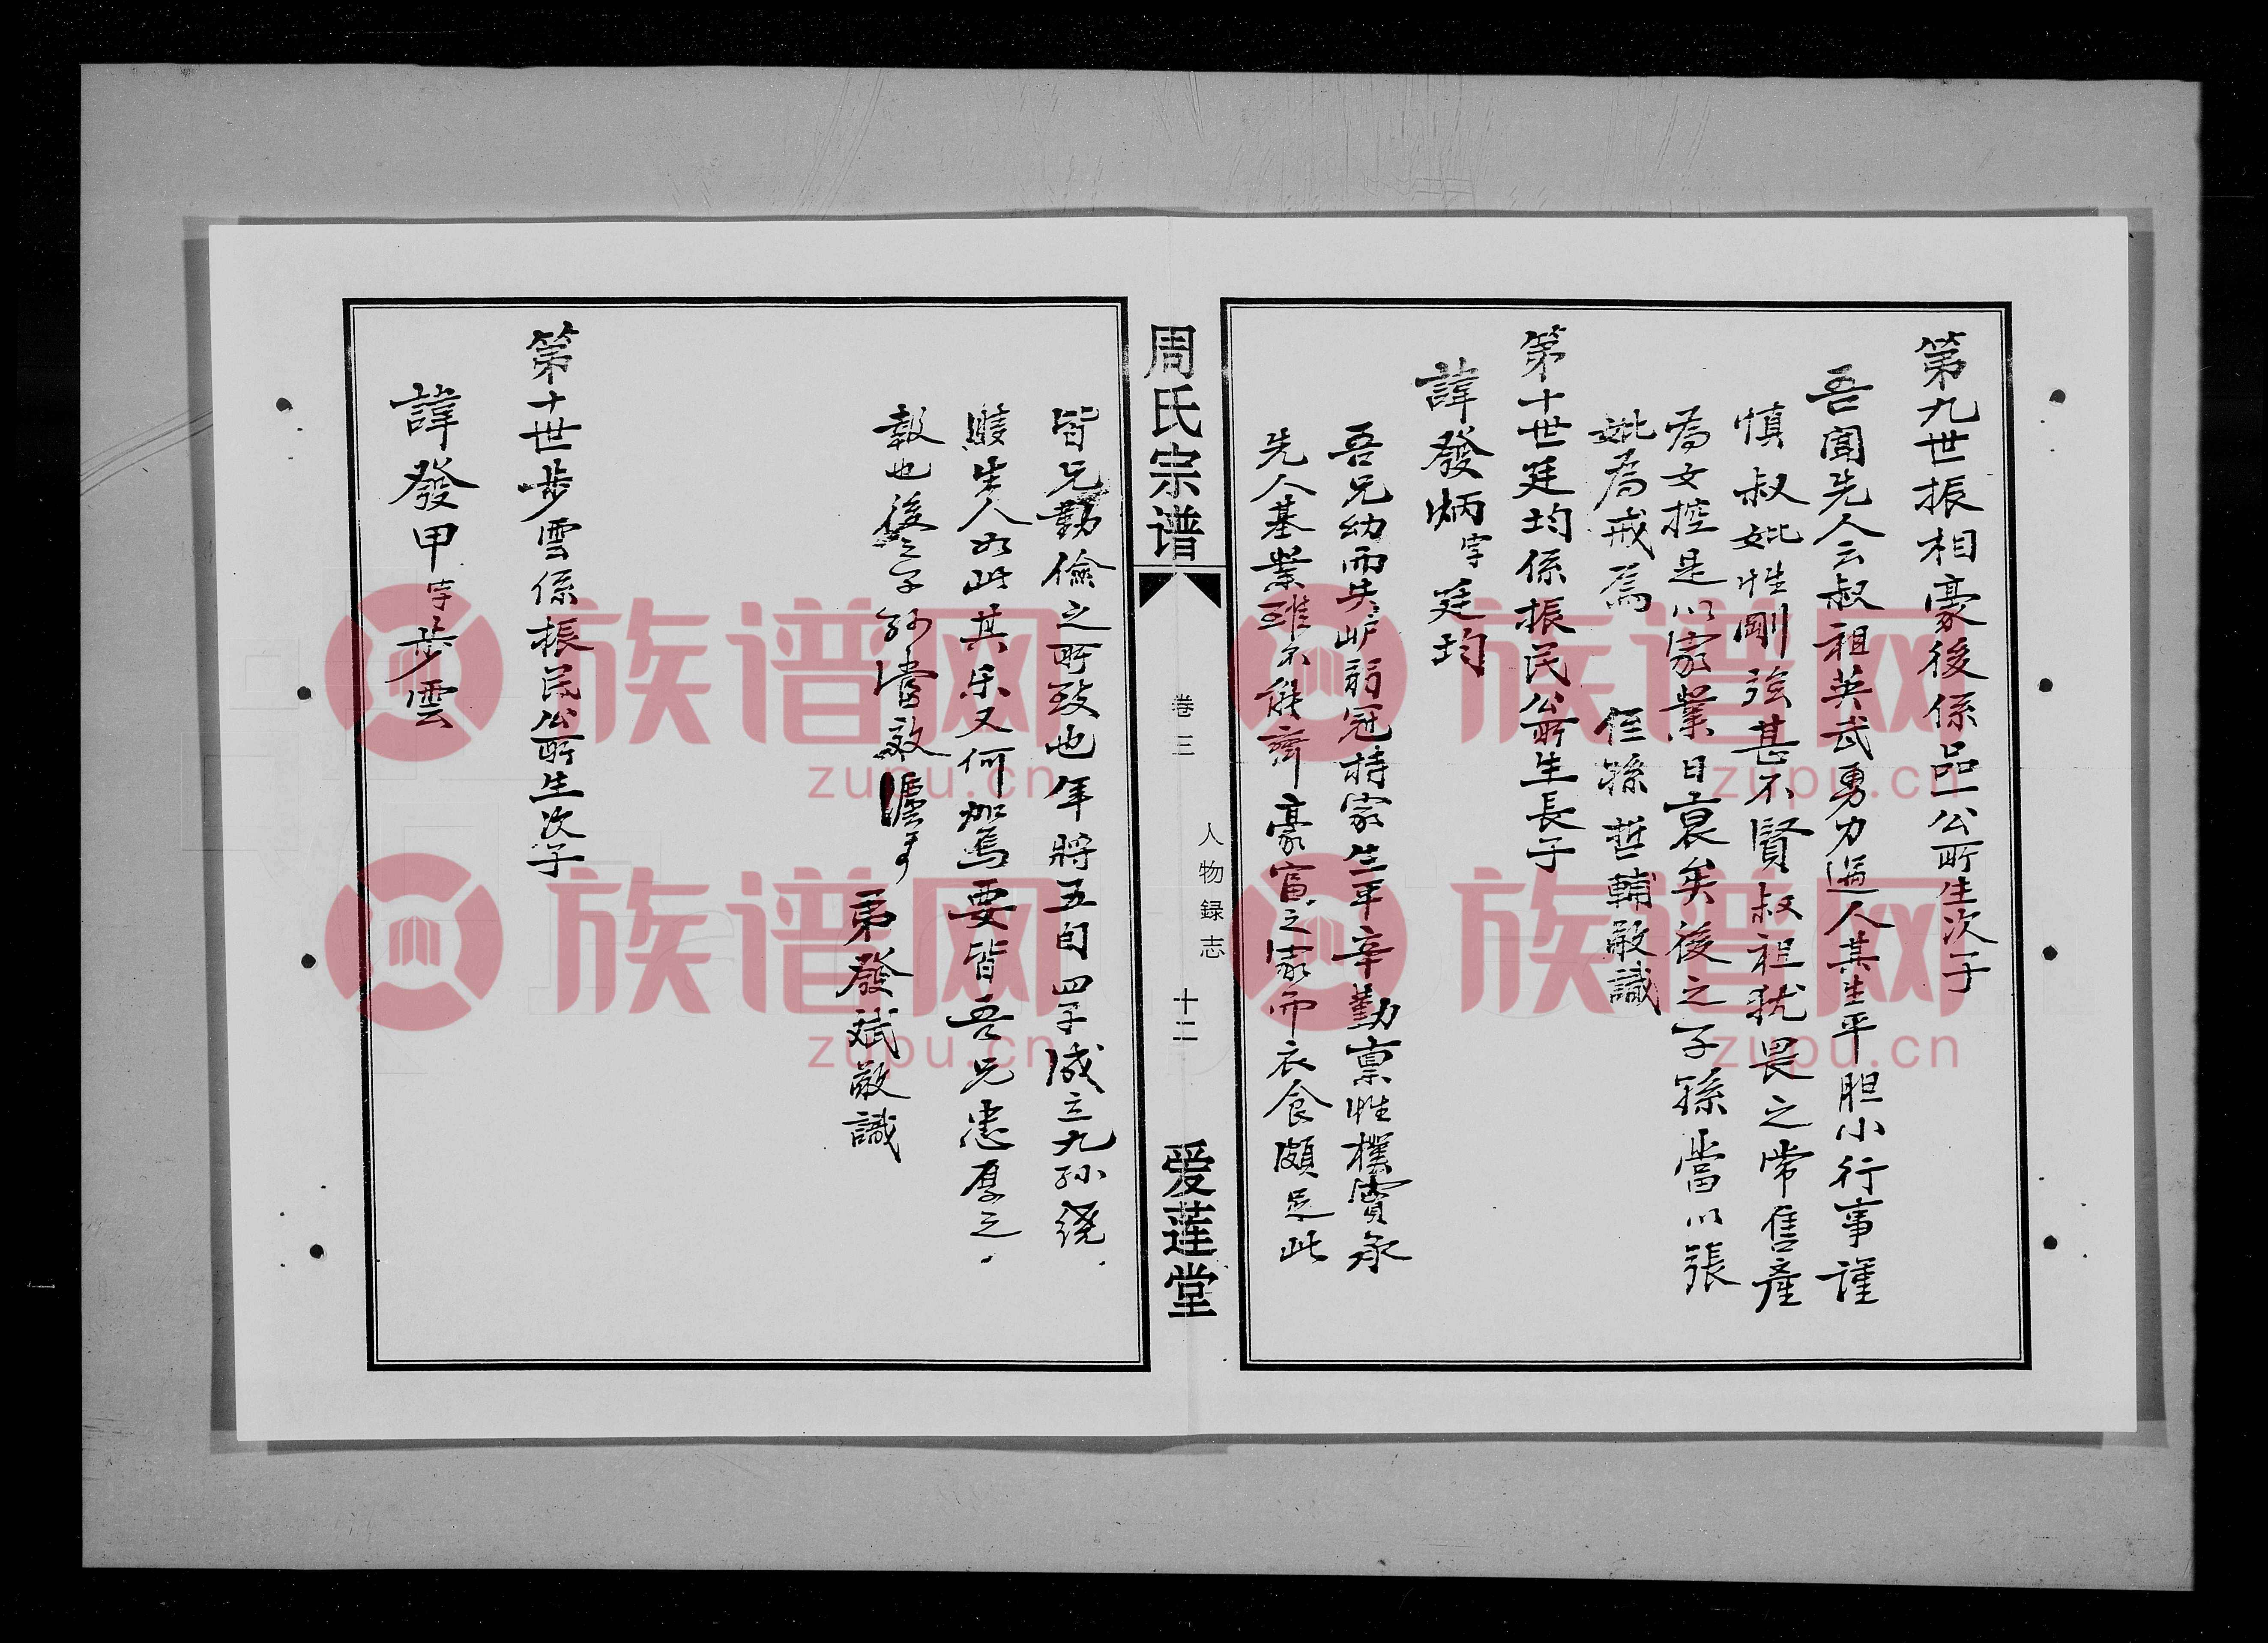 第九世振相豪後係品一公所生次子
吾聞先人云叔祖英武勇力過人某生平胆小行事謹
慎叔妣性剛強甚不賢叔祖犹畏之常售產
為女控是以家業日衰矣後之子孫當以張
妣為戒焉 侄孫哲輔敬識
第十世廷均係振民公所生長子
諱發炳字廷均
吾兄幼而失岵弱冠持家生平辛勤禀性樸實承
先人基業雖不能齊豪富之家而衣食頗足此
周氏宗谱
卷三
人物録志
十二
爱莲堂
皆兄勤儉之所致也年將五旬四子成立九孙绕
膝生人如此其乐又何加焉要皆吾兄忠厚之
報也後之子孙當效
弟發斌敬識
第十世步雲係振民公所生次子
諱發甲字步雲
族谱网
zupu.cn
族谱网
zupu.cn
族谱网
zupu.cn
族谱网
zupu.cn